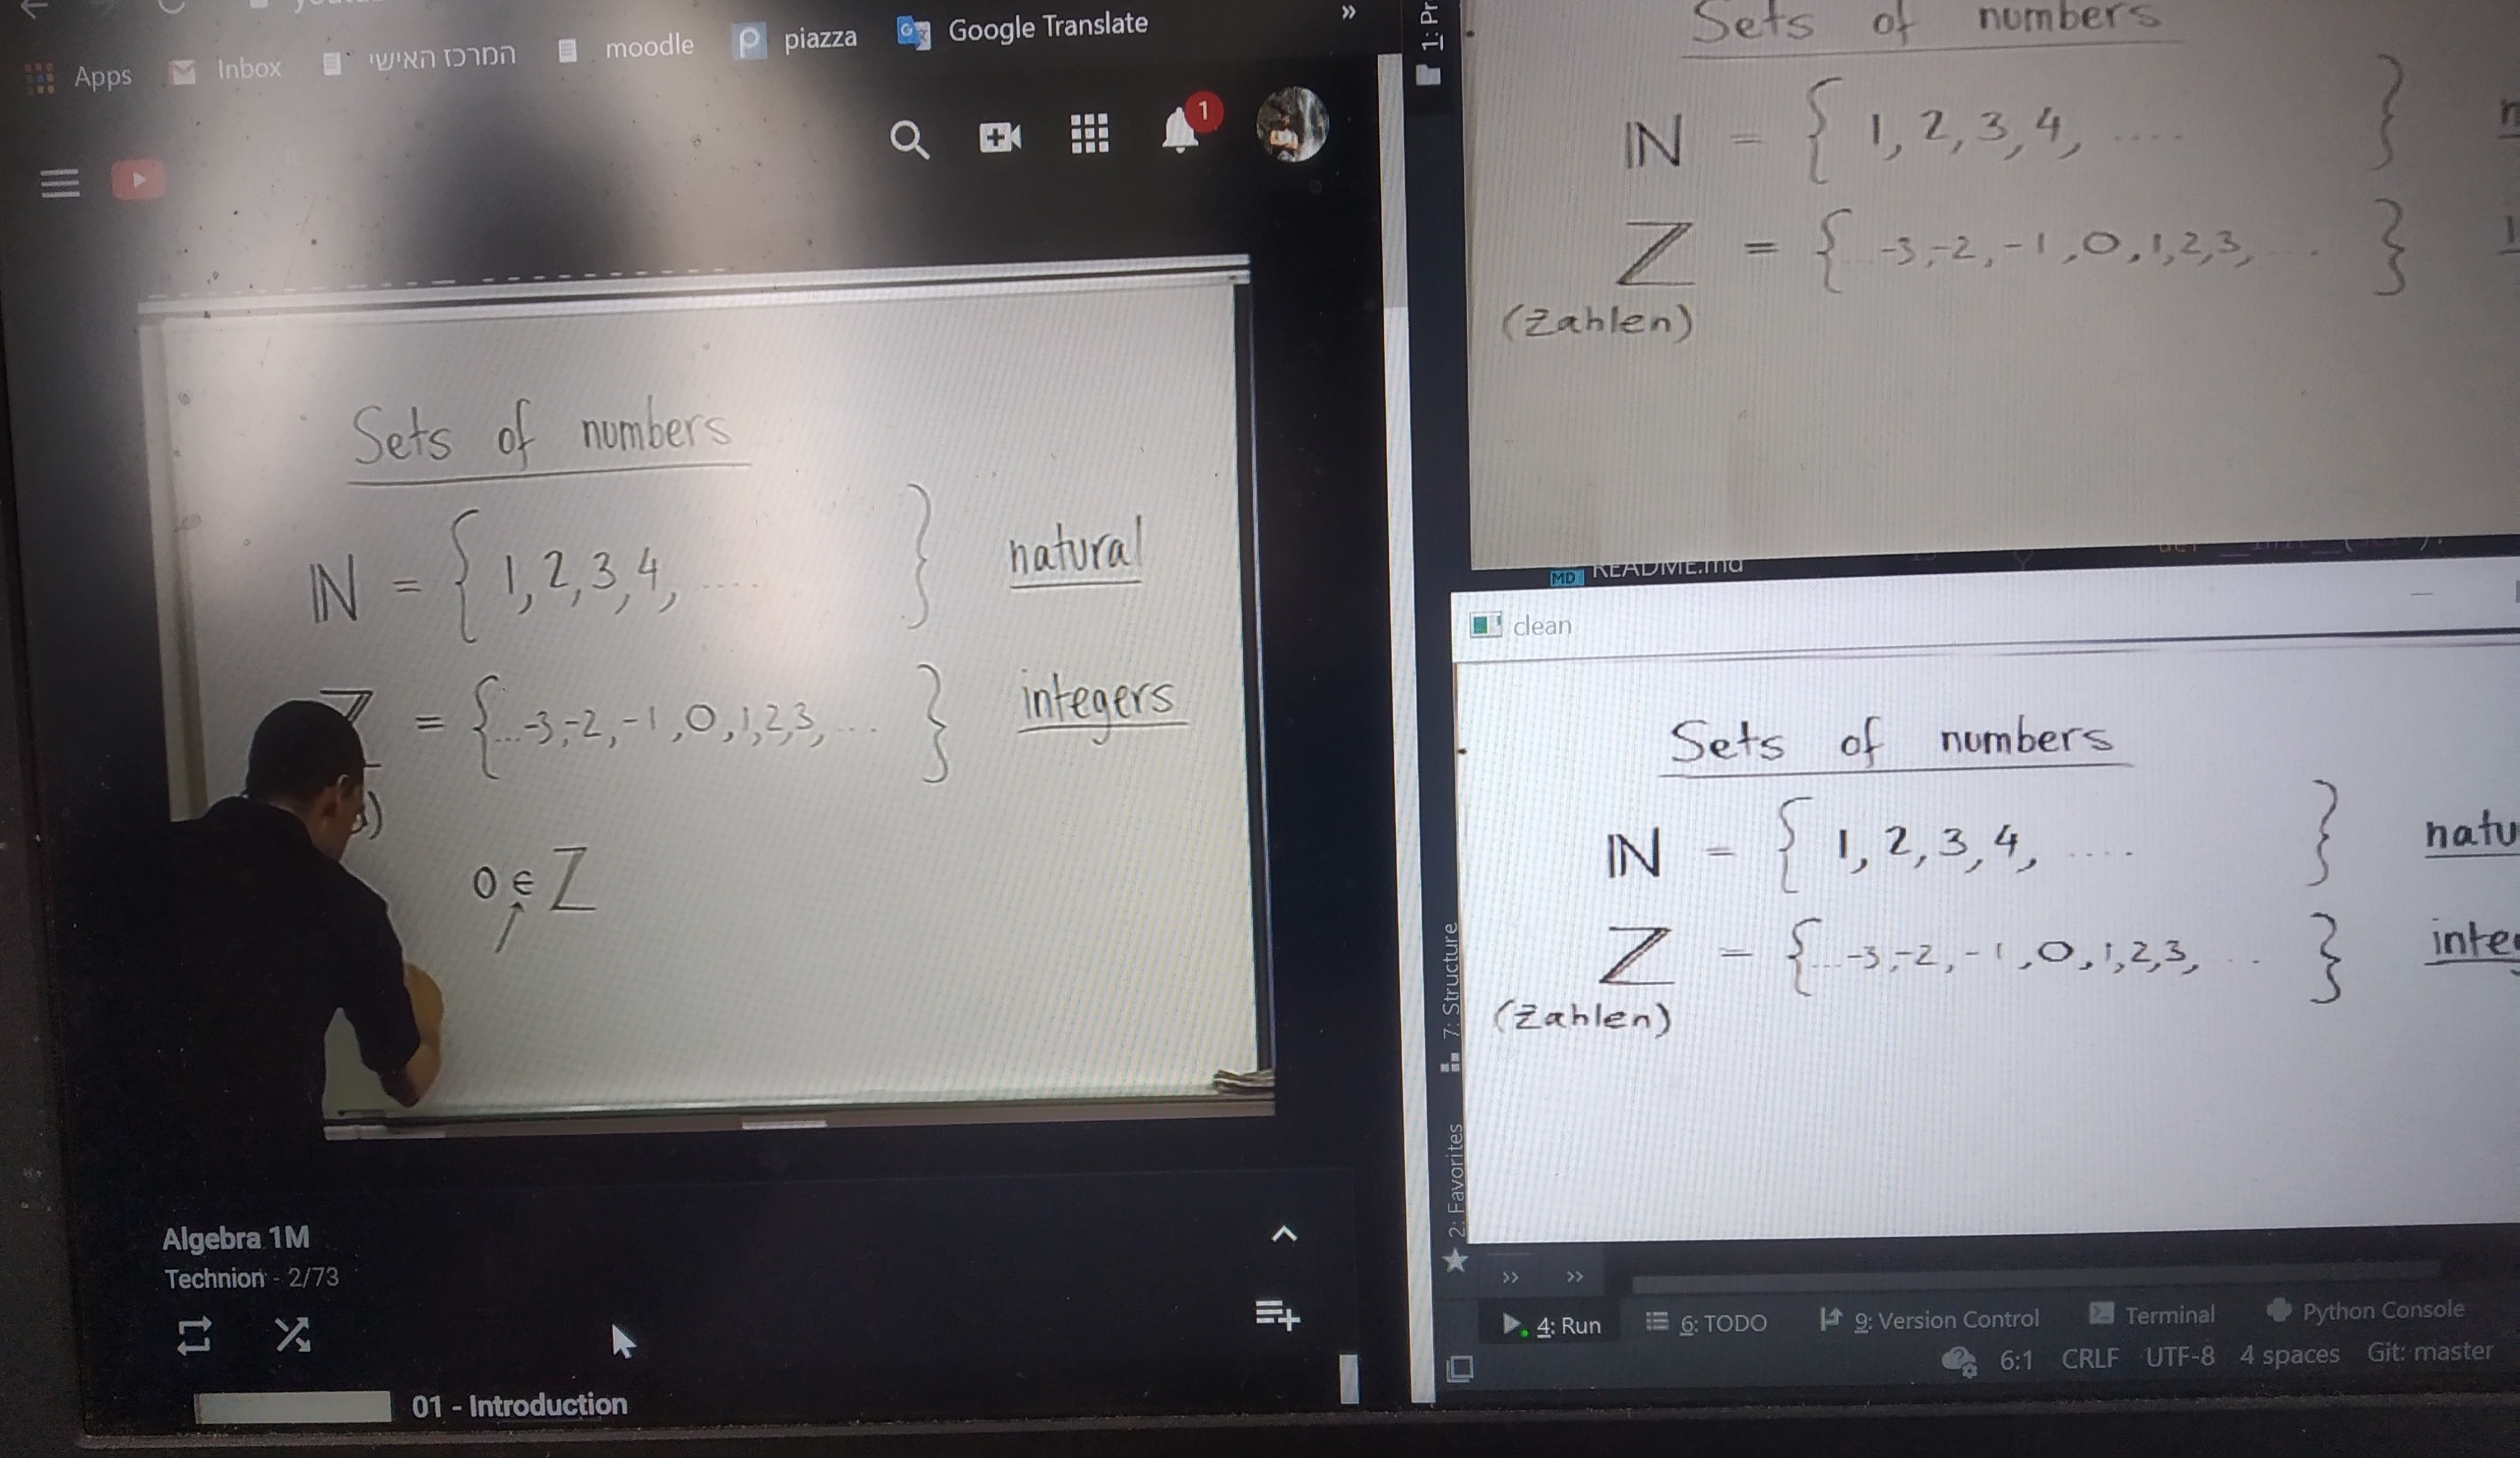 Apps Inbox המרכז האישי moodle piazza Google Translate »
1
Sets of numbers
ℕ = { 1, 2, 3, 4, .... } natural
= {...-3,-2,-1,0,1,2,3,... } integers
)
0 ∈ Z
Algebra 1M
Technion - 2/73
01 - Introduction
1: Pr
Sets of numbers
ℕ = { 1, 2, 3, 4, .... }
ℤ = {...-3,-2,-1,0,1,2,3,... }
(Zahlen)
MD README.md
clean
Sets of numbers
ℕ = { 1, 2, 3, 4, .... } natu
ℤ = {...-3,-2,-1,0,1,2,3,... } inte
(Zahlen)
7: Structure
2: Favorites
>> >>
4: Run 6: TODO 9: Version Control Terminal Python Console
6:1 CRLF UTF-8 4 spaces Git: master